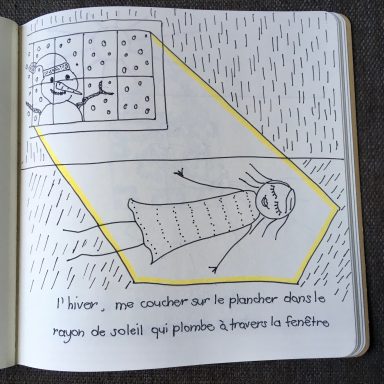 l'hiver, me coucher sur le plancher dans le
rayon de soleil qui plombe à travers la fenêtre